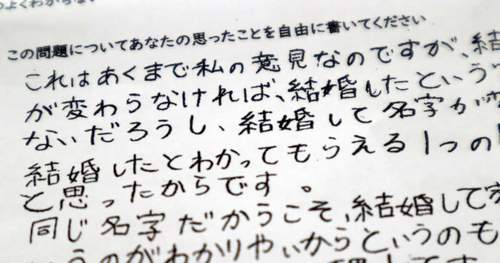 よくわからない
この問題についてあなたの思ったことを自由に書いてください
これはあくまで私の意見なのですが、結
が変わらなければ、結婚したという
ないだろうし、結婚して名字が変
結婚したとわかってもらえる1つの
と思ったからです。
同じ名字だからこそ、結婚して
うのがわかりやいからというのも